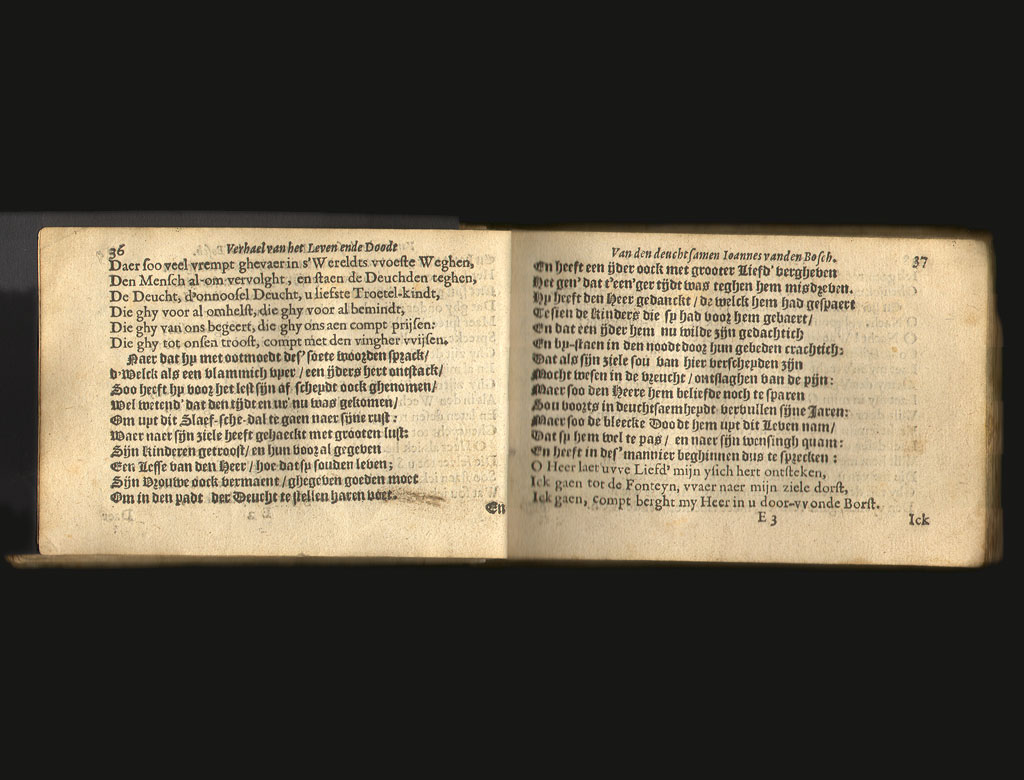 36 Verhael van het Leven ende Doodt
Daer soo veel vrempt ghevaer in s'Wereldts vvoeste Weghen,
Den Mensch al-om vervolght, en staen de Deuchden teghen,
De Deucht, d'onnoosel Deucht, u liefste Troetel-kindt,
Die ghy voor al omhelst, die ghy voor al bemindt,
Die ghy van ons begeert, die ghy ons aen compt prijsen:
Die ghy tot onsen troost, compt met den vingher vvijsen.
Naer dat hy met ootmoedt des' soete woorden sprack/
d'Welck als een vlammich vyer/ een yders hert ontstack/
Soo heeft hy voor het lest sijn af-scheydt oock ghenomen/
Wel wetend' dat den tijdt en ur' nu was gekomen/
Om uyt dit Slaef-sche-dal te gaen naer sijne rust:
Waer naer sijn ziele heeft gehaeckt met grooten lust:
Sijn Kinderen getroost/ en hun vooral gegeven
Een Lesse van den Heer/ hoe dat sy souden leven;
Sijn Vrouwe oock vermaent/ ghegeven goeden moet
Om in den padt der Deucht te stellen haren voet.
En
Van den deuchtsamen Ioannes vanden Bosch. 37
En heeft een yder oock met grooter Liefd' vergheven
Het gen' dat t'een'ger tijdt was teghen hem misdreven.
Hy heeft den Heer gedanckt/ de welck hem had gespaert
Te sien de Kinders die sy had voor hem gebaert/
En dat een yder hem nu wilde zijn gedachtich
En by-staen in den noodt door hun gebeden crachtich:
Dat als sijn ziele sou van hier verscheyden zijn
Mocht wesen in de vreucht/ ontslaghen van de pijn:
Maer soo den Heere hem beliefde noch te sparen
Sou voorts in deuchtsaemheydt vervullen sijne Jaren:
Maer soo de bleecke Doodt hem uyt dit Leven nam/
Dat sy hem wel te pas/ en naer sijn wensingh quam:
En heeft in des' mannier beghinnen dus te sprecken:
O Heer laet uvve Liefd' mijn ysich hert ontsteken,
Ick gaen tot de Fonteyn, vvaer naer mijn ziele dorst,
Ick gaen, compt berght my Heer in u door-vvonde Borst.
E 3 Ick